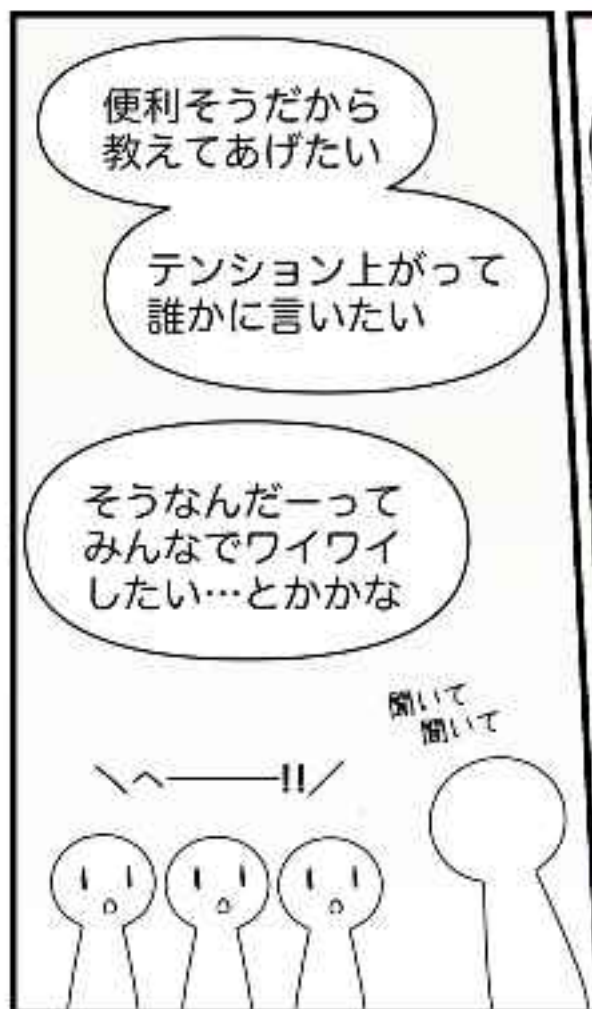 便利そうだから
教えてあげたい
テンション上がって
誰かに言いたい
そうなんだーって
みんなでワイワイ
したい…とかかな
聞いて
聞いて
＼へ────!!／